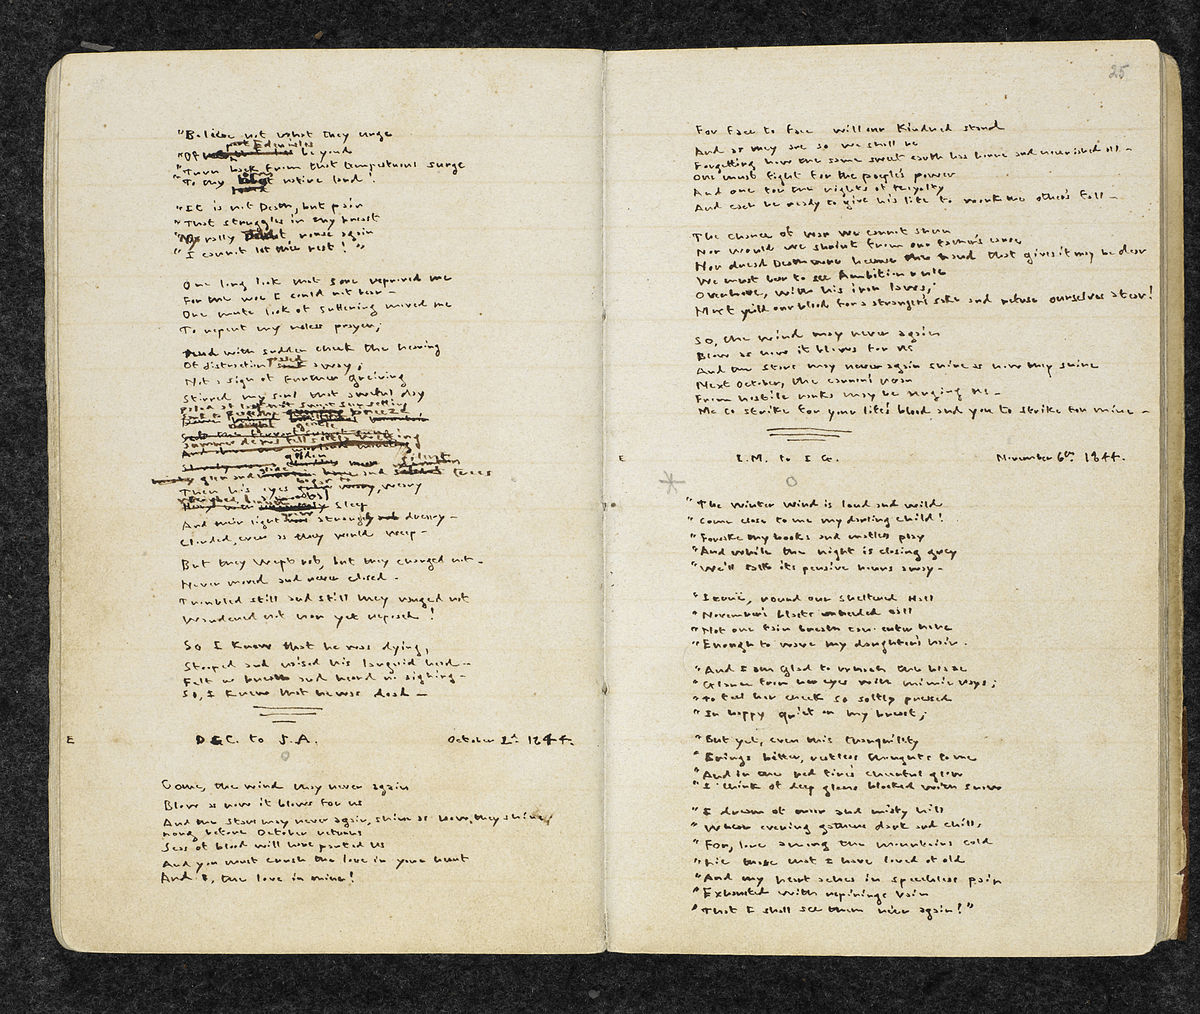 "Believe not what they urge
past Eden isles
"Of beyond
"Turn back from that tempestuous surge
"To thy native land!
"It is not Death, but pain
"That struggles in thy breast
"Nay rally rouse again
"I cannot let thee rest!"
One long look that sore reproved me
For the woe I could not bear -
One mute look of suffering moved me
To repent my useless prayer;
And with sudden check the heaving
Of distraction passed away;
Not a sign of further grieving
Stirred my soul that awful day
Then his eyes began to weary
sleep
And their light grew strangely dreary -
Clouded, even as they would weep -
But they wept not, but they changed not -
Never moved and never closed -
Troubled still and still they ranged not
Wandered not nor yet reposed!
So I knew that he was dying,
Stooped and raised his languid head -
Felt no breath and heard no sighing -
So, I knew that he was dead -
E
D.G.C. to J.A.
October 2d 1844.
Come, the wind may never again
Blow as now it blows for us
And the stars may never again, shine as now they shine;
Long before October returns
Seas of blood will have parted us
And you must crush the love in your heart
And I, the love in mine!
25
For face to face will our kindred stand
And as they are so we shall be
Forgetting how the same sweet earth has borne and nourished all -
One must fight for the people's power
And one for the rights of royalty
And each be ready to give his life to work the other's fall -
The chance of war we cannot shun
Nor would we shrink from our father's cause
Nor dread Death more because the hand that gives it may be dear
We must bear to see Ambition rule
Over love, with his iron laws;
Must yield our blood for a stranger's sake and refuse ourselves a tear!
So, the wind may never again
Blow as now it blows for us
And the stars may never again shine as now they shine
Next October, the coming year
From hostile ranks may be urging us -
Me to strike for your life's blood and you to strike for mine -
E
E.M. to I G.
November 6th 1844.
"The winter wind is loud and wild
"Come close to me my darling child!
"Forsake thy books and mateless play
"And while the night is closing grey
"We'll talk its pensive hours away -
"Ierne, round our sheltered Hall
"November's blasts unheeded call
"Not one faint breath can enter here
"Enough to wave my daughter's hair.
"And I am glad to watch the blaze
"Glance from her eyes with mimic rays;
"To feel her cheek so softly pressed
"In happy quiet on my breast;
"But yet, even this tranquility
"Brings bitter, restless thoughts to me
"And in the red fire's cheerful glow
"I think of deep glens blocked with snow
"I dream of moor and misty hill
"Where evening gathers dark and chill,
"For, lone among the mountains cold
"Lie those that I have loved of old
"And my heart aches in speechless pain
"Exhausted with repinings vain
"That I shall see them ne'er again!"